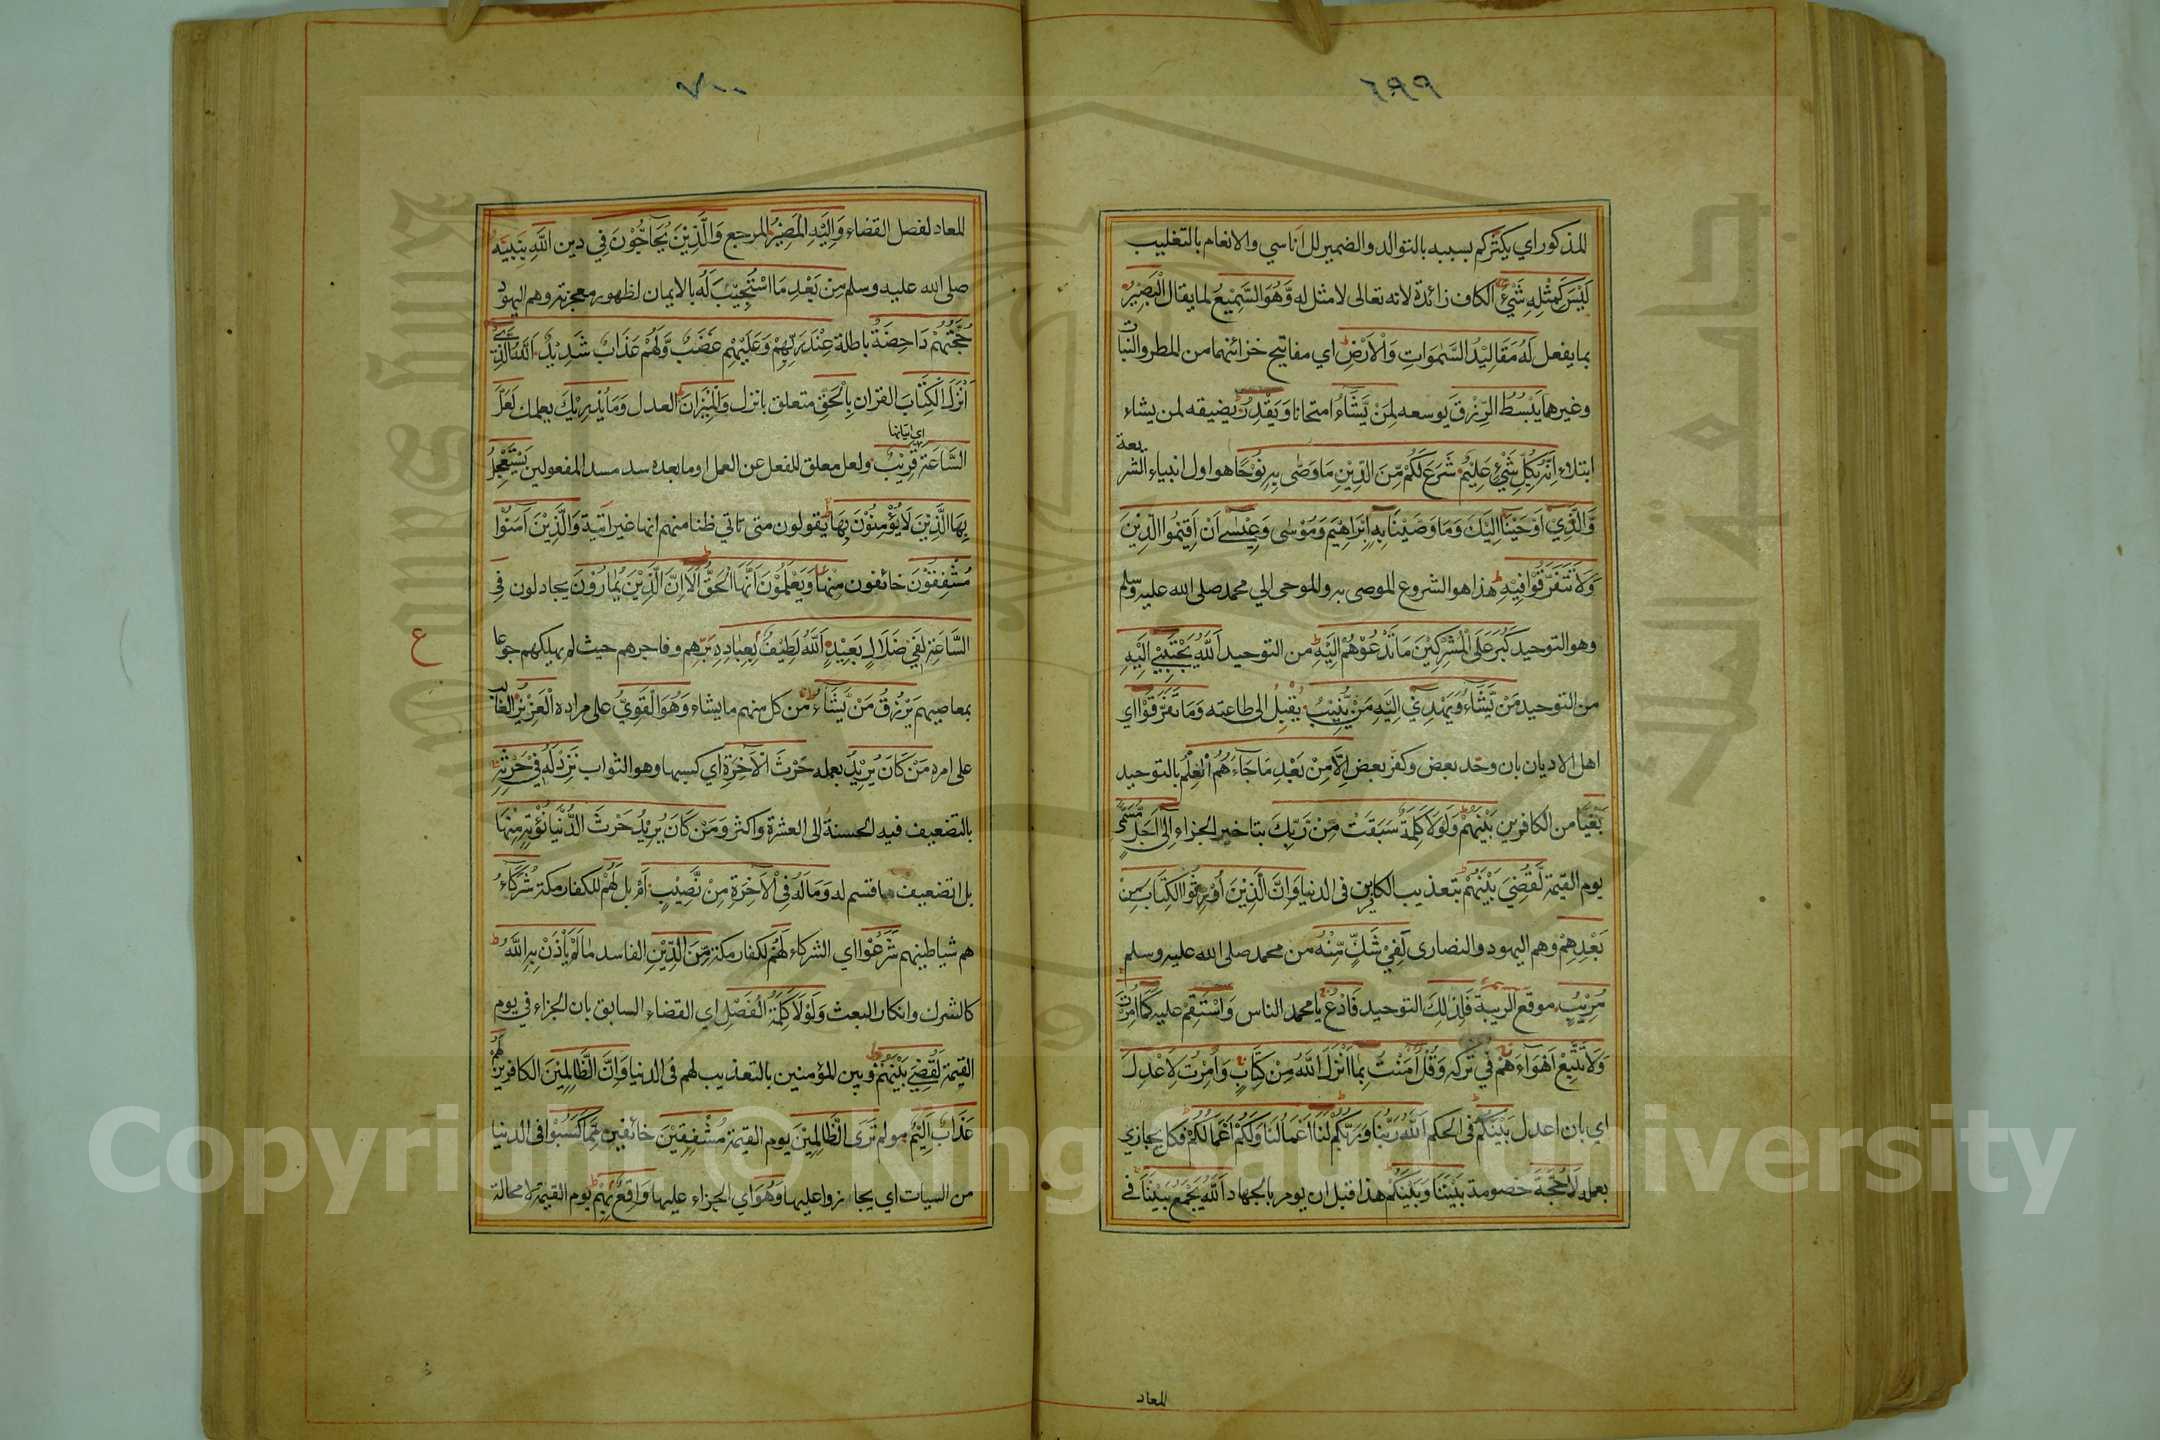 ٦٩٩
المذكور اي يكثركم بسببه بالتوالد والضمير للاناسي والانعام بالتغليب
لَيْسَ كَمِثْلِهِ شَيْءٌ الكاف زائدة لانه تعالى لا مثل له وَّهُوَ السَّمِيْعُ لما يقال الْبَصِيْرُ
بما يفعل لَهُ مَقَالِيْدُ السَّمٰوَاتِ وَالْاَرْضِ اي مفاتيح خزائنهما من المطر والنبات
وغيرهما يَبْسُطُ الرِّزْقَ يوسعه لِمَنْ يَّشَاءُ امتحانا وَيَقْدِرُ يضيقه لمن يشاء
ابتلاء اِنَّهُ بِكُلِّ شَيْءٍ عَلِيْمٌ شَرَعَ لَكُمْ مِّنَ الدِّيْنِ مَا وَصّٰى بِهِ نُوْحًا هو اول انبياء الشريعة
وَّالَّذِيْ اَوْحَيْنَا اِلَيْكَ وَمَا وَصَّيْنَا بِهٖ اِبْرَاهِيْمَ وَمُوْسٰى وَعِيْسٰى اَنْ اَقِيْمُوا الدِّيْنَ
وَلَا تَتَفَرَّقُوْا فِيْهِ هذا هو الشروع الموصى به والموحى الي محمد صلى الله عليه وسلم
وهو التوحيد كَبُرَ عَلَى الْمُشْرِكِيْنَ مَا تَدْعُوْهُمْ اِلَيْهِ من التوحيد اَللّٰهُ يَجْتَبِيْ اِلَيْهِ
من التوحيد مَنْ يَّشَاءُ وَيَهْدِيْ اِلَيْهِ مَنْ يُّنِيْبُ يُقْبِلُ الى طاعته وَمَا تَفَرَّقُوْا اي
اهل الاديان بان وحّد بعض وكفر بعض اِلَّا مِنْ بَعْدِ مَا جَاءَهُمُ الْعِلْمُ بالتوحيد
بَغْيًا من الكافرين بَيْنَهُمْ وَلَوْلَا كَلِمَةٌ سَبَقَتْ مِنْ رَّبِّكَ بتاخير الجزاء اِلٰى اَجَلٍ مُّسَمًّى
يوم القيمة لَّقُضِيَ بَيْنَهُمْ بتعذيب الكافرين فى الدنيا وَاِنَّ الَّذِيْنَ اُوْرِثُوا الْكِتَابَ مِنْ
بَعْدِهِمْ وهم اليهود والنصارى لَفِيْ شَكٍّ مِّنْهُ من محمد صلى الله عليه وسلم
مُرِيْبٍ موقع الريبة فَلِذٰلِكَ التوحيد فَادْعُ يا محمد الناس وَاسْتَقِمْ عليه كَمَا اُمِرْتَ
وَلَا تَتَّبِعْ اَهْوَاءَهُمْ في تركه وَقُلْ اٰمَنْتُ بِمَا اَنْزَلَ اللّٰهُ مِنْ كِتَابٍ وَاُمِرْتُ لِاَعْدِلَ
اي بان اعدل بَيْنَكُمْ فى الحكم اَللّٰهُ رَبُّنَا وَرَبُّكُمْ لَنَا اَعْمَالُنَا وَلَكُمْ اَعْمَالُكُمْ فكل يجازي
بعمله لَا حُجَّةَ خصومة بَيْنَنَا وَبَيْنَكُمْ هذا قبل ان يومر بالجهاد اَللّٰهُ يَجْمَعُ بَيْنَنَا في
المعاد
٧٠٠
المعاد لفصل القضاء وَاِلَيْهِ الْمَصِيْرُ المرجع وَالَّذِيْنَ يُحَاجُّوْنَ فِي دين اللّٰهِ بنبيه
صلى الله عليه وسلم مِنْ بَعْدِ مَا اسْتُجِيْبَ لَهُ بالايمان لظهور معجزته وهم اليهود
حُجَّتُهُمْ دَاحِضَةٌ باطلة عِنْدَ رَبِّهِمْ وَعَلَيْهِمْ غَضَبٌ وَّلَهُمْ عَذَابٌ شَدِيْدٌ اَللّٰهُ الَّذِيْ
اَنْزَلَ الْكِتَابَ القران بِالْحَقِّ متعلق بانزل وَالْمِيْزَانَ العدل وَمَا يُدْرِيْكَ يعلمك لَعَلَّ
اي اتيانها
السَّاعَةَ قَرِيْبٌ ولعل معلق للفعل عن العمل او ما بعده سد مسد المفعولين يَسْتَعْجِلُ
بِهَا الَّذِيْنَ لَا يُؤْمِنُوْنَ بِهَا يقولون متى تاتي ظنا منهم انها غير اتية وَالَّذِيْنَ اٰمَنُوْا
مُشْفِقُوْنَ خائفون مِنْهَا وَيَعْلَمُوْنَ اَنَّهَا الْحَقُّ اَلَا اِنَّ الَّذِيْنَ يُمَارُوْنَ يجادلون فِى
السَّاعَةِ لَفِيْ ضَلَالٍ بَعِيْدٍ اَللّٰهُ لَطِيْفٌ بِعِبَادِهِ برّهم وفاجرهم حيث لم يهلكهم جوعا
ع
بمعاصيهم يَرْزُقُ مَنْ يَّشَاءُ من كل منهم ما يشاء وَهُوَ الْقَوِيُّ على مراده الْعَزِيْزُ الغالب
على امره مَنْ كَانَ يُرِيْدُ بعمله حَرْثَ الْاٰخِرَةِ اي كسبها وهو الثواب نَزِدْ لَهُ فِيْ حَرْثِهِ
بالتضعيف فيه الحسنة الى العشرة واكثر وَمَنْ كَانَ يُرِيْدُ حَرْثَ الدُّنْيَا نُؤْتِهِ مِنْهَا
بلا تضعيف ما قسم له وَمَا لَهُ فِي الْاٰخِرَةِ مِنْ نَّصِيْبٍ اَمْ بل لَهُمْ للكفار مكة شُرَكَاءُ
هم شياطينهم شَرَعُوْا اي الشركاء لَهُمْ لكفار مكة مِّنَ الدِّيْنِ الفاسد مَا لَمْ يَأْذَنْ بِهِ اللّٰهُ
كالشرك وانكار البعث وَلَوْلَا كَلِمَةُ الْفَصْلِ اي القضاء السابق بان الجزاء في يوم
القيمة لَقُضِيَ بَيْنَهُمْ وبين المؤمنين بالتعذيب لهم فى الدنيا وَاِنَّ الظَّالِمِيْنَ الكافرين لَهُمْ
عَذَابٌ اَلِيْمٌ مولم تَرَى الظَّالِمِيْنَ يوم القيمة مُشْفِقِيْنَ خائفين مِمَّا كَسَبُوْا فى الدنيا
من السيات اي يجازوا عليها وَهُوَ اي الجزاء عليها وَاقِعٌ بِهِمْ يوم القيمة لا محالة
Copyright © King Saud University